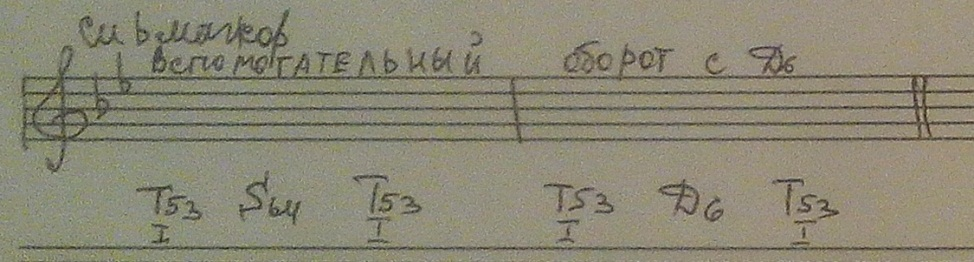 Си ь мажор
Вспомогательный оборот с D6
T53 S64 T53 T53 D6 T53
I I I I